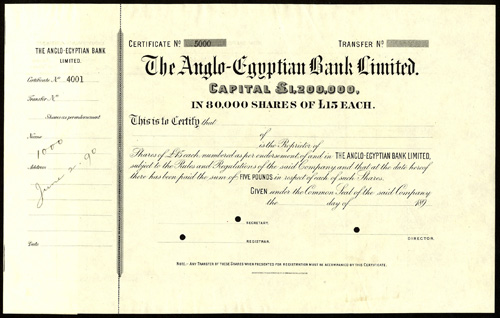 THE ANGLO-EGYPTIAN BANK
LIMITED.
Certificate No 4001
Transfer No
Shares as per endorsement
Name
1000
June 2. 90
Date
CERTIFICATE No 5000
TRANSFER No
The Anglo-Egyptian Bank Limited.
CAPITAL £1,200,000,
IN 80,000 SHARES OF £15 EACH.
This is to Certify that
of
is the Proprietor of
Shares of £15 each, numbered as per endorsement of and in THE ANGLO-EGYPTIAN BANK LIMITED,
subject to the Rules and Regulations of the said Company and that at the date hereof
there has been paid the sum of FIVE POUNDS in respect of each of such Shares.
GIVEN under the Common Seal of the said Company
the day of 189
SECRETARY.
REGISTRAR.
DIRECTOR.
NOTE:- ANY TRANSFER OF THESE SHARES WHEN PRESENTED FOR REGISTRATION MUST BE ACCOMPANIED BY THIS CERTIFICATE.